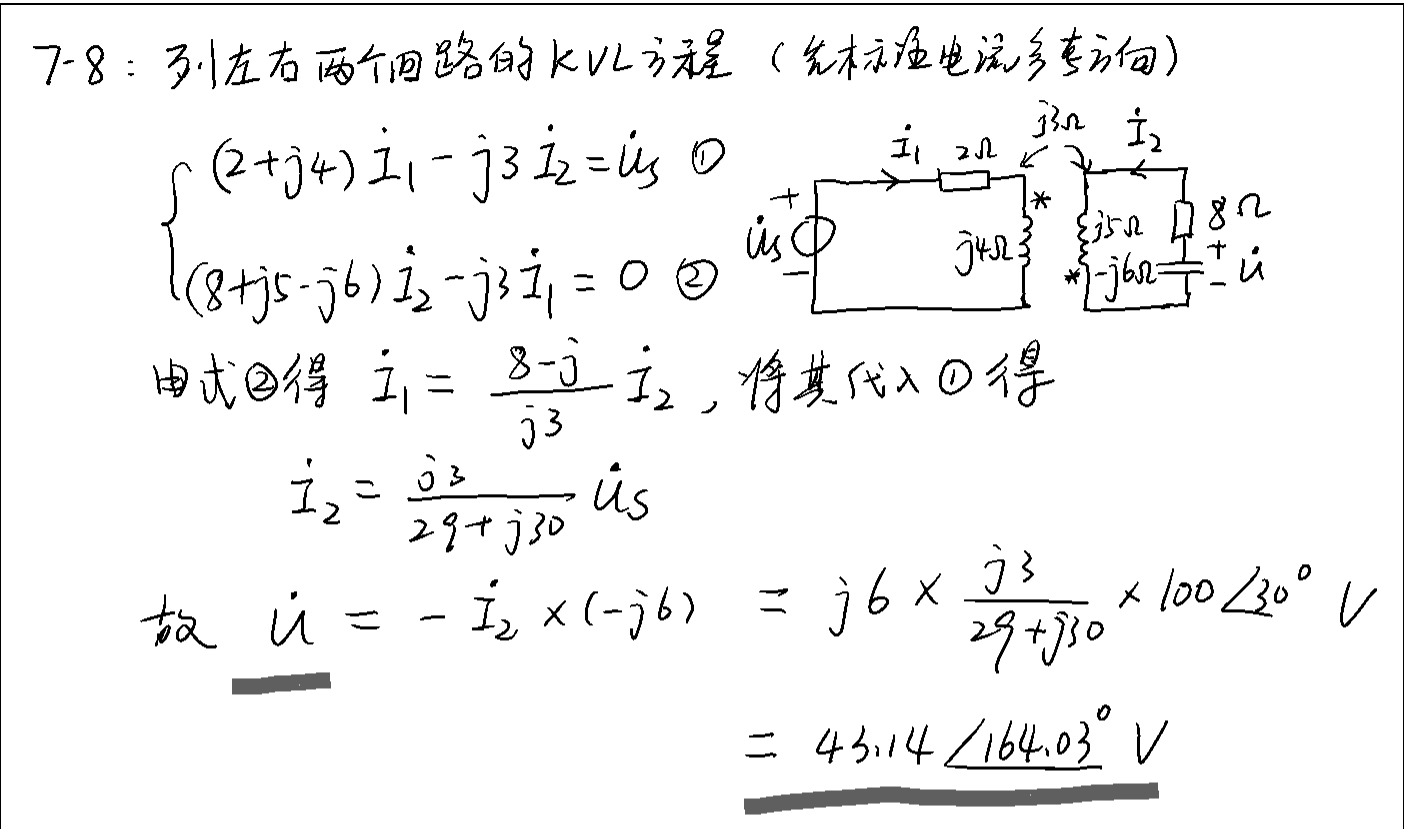 7-8：列左右两个回路的KVL方程（先标准电流参考方向）
(2+j4)İ₁-j3İ₂=U̇s ①
(8+j5-j6)İ₂-j3İ₁=0 ②
İ₁ 2Ω j3Ω İ₂
+ U̇s - j4Ω * j5Ω * -j6Ω 8Ω + U̇ -
由式②得 İ₁=(8-j)/(j3) İ₂，将其代入①得
İ₂=(j3)/(29+j30) U̇s
故 U̇ = -İ₂×(-j6) = j6×(j3)/(29+j30)×100∠30° V
= 43.14∠164.03° V